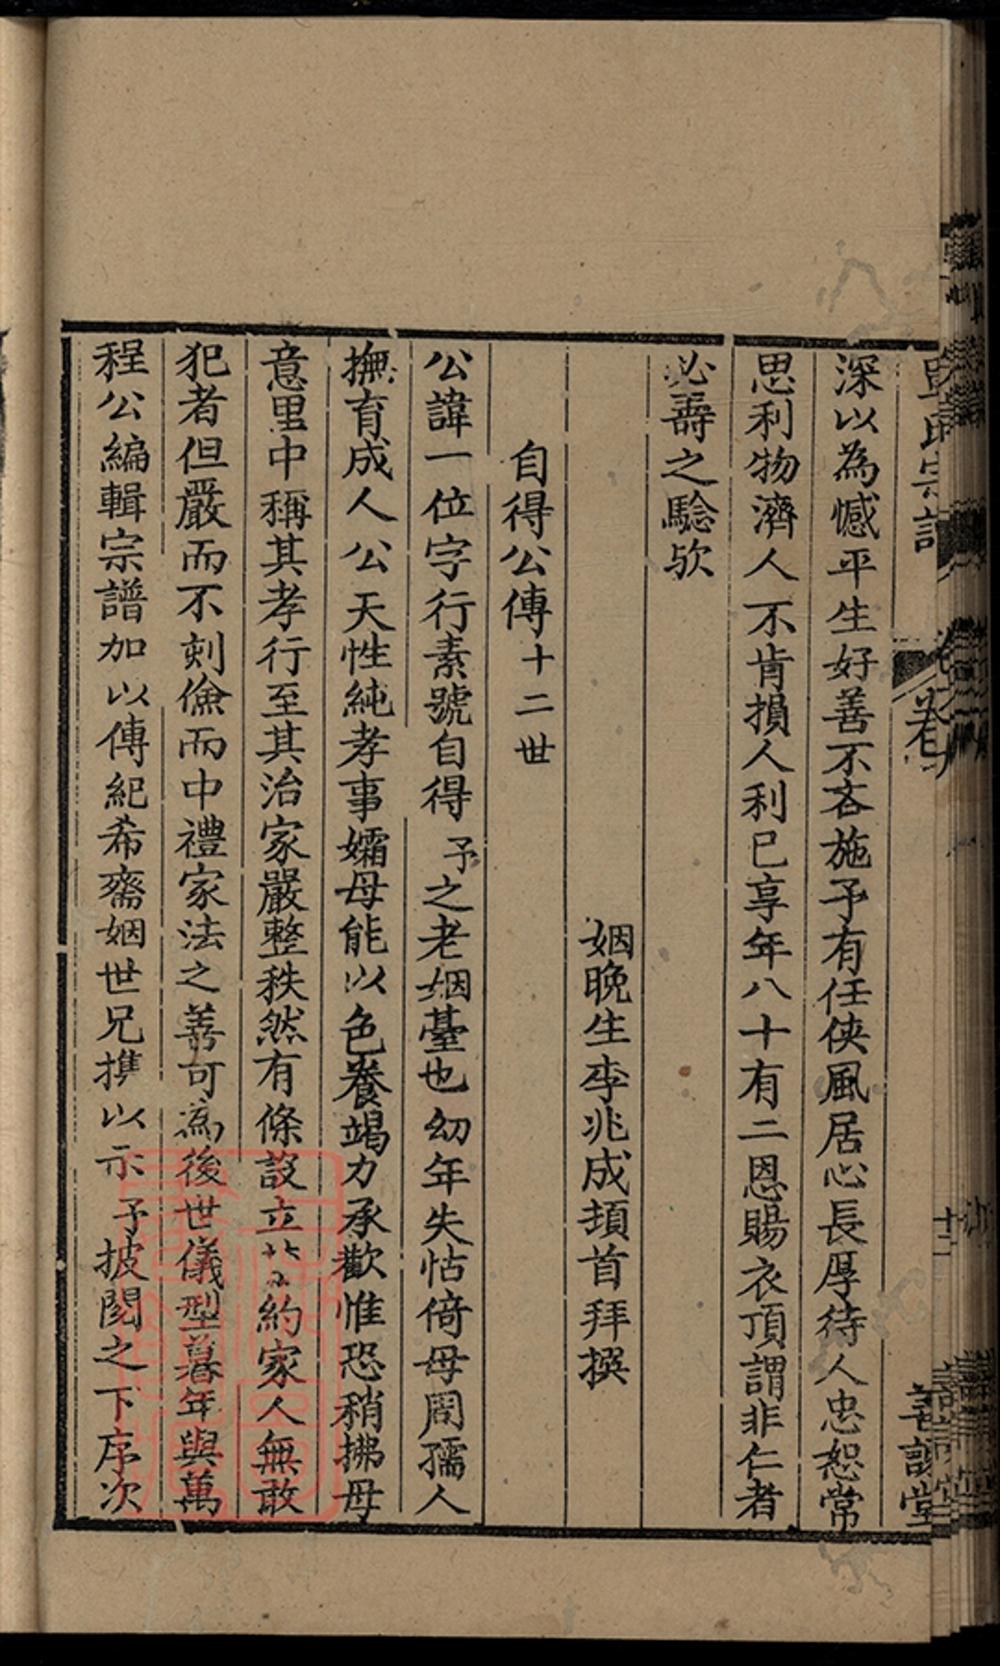 深以為憾平生好善不吝施予有任俠風居心長厚待人忠恕常
思利物濟人不肯損人利已享年八十有二恩賜衣頂謂非仁者
必壽之驗欤
姻晚生李兆成頓首拜撰
自得公傳十二世
公諱一位字行素號自得予之老姻臺也幼年失怙倚母周孺人
撫育成人公天性純孝事孀母能以色養竭力承歡惟恐稍拂母
意里中稱其孝行至其治家嚴整秩然有條設立約家人無敢
犯者但嚴而不刻儉而中禮家法之善可為後世儀型暮年與萬
程公編輯宗譜加以傳紀希齋姻世兄携以示予披閱之下序次